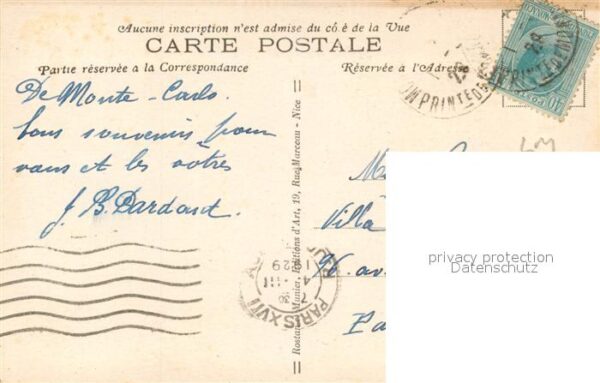 Aucune inscription n'est admise du cô é de la Vue
CARTE POSTALE
Partie réservée a la Correspondance
Réservée à l'Adresse
De Monte-Carlo.
bons souvenirs pour
vous et les vôtres
J. B. Dardard.
Villa
96 av
Pa
Rostan Munier, Editions d'Art, 19, Rue Marceau - Nice
PARIS XVII
1929
privacy protection
Datenschutz